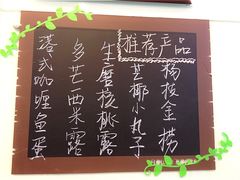 推荐产品
杨枝金捞
芒椰小丸子
生磨核桃露
多芒西米露
港式咖喱鱼蛋